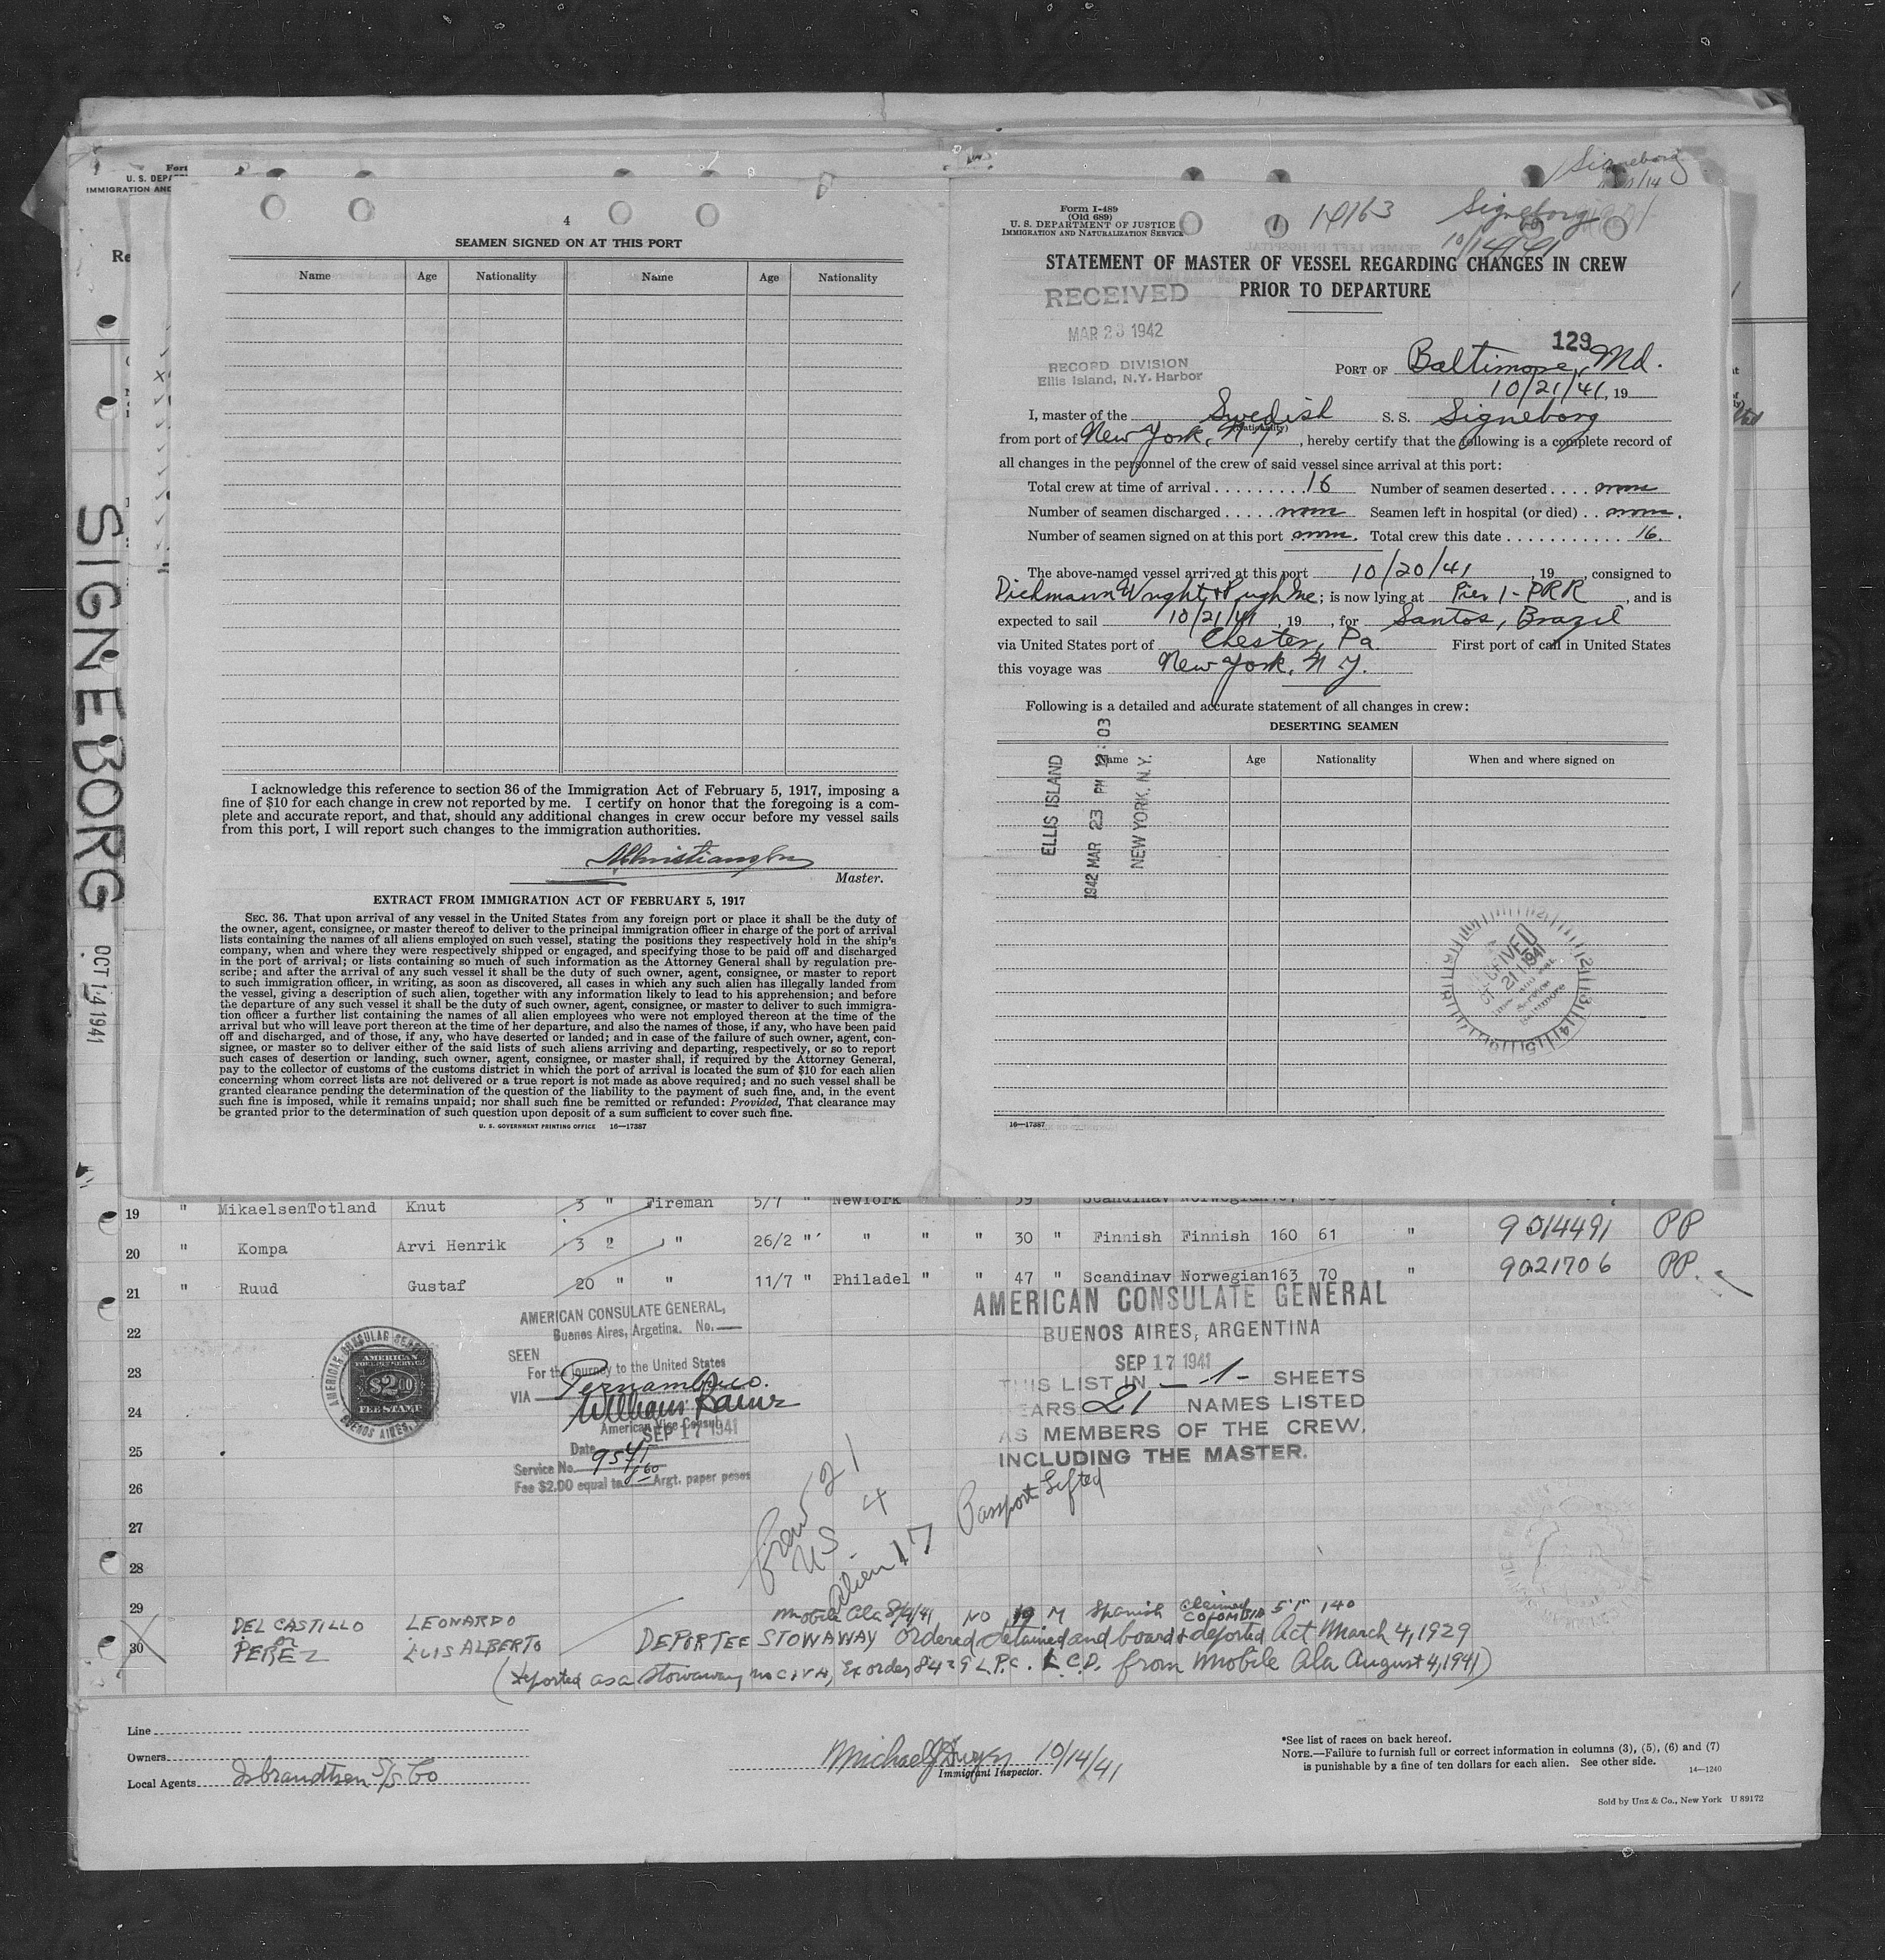 Signeborg
U. S. DEPA
IMMIGRATION AND
Re
SIGNEBORG OCT 14 1941
4
SEAMEN SIGNED ON AT THIS PORT
Name Age Nationality Name Age Nationality
I acknowledge this reference to section 36 of the Immigration Act of February 5, 1917, imposing a
fine of $10 for each change in crew not reported by me. I certify on honor that the foregoing is a com-
plete and accurate report, and that, should any additional changes in crew occur before my vessel sails
from this port, I will report such changes to the immigration authorities.
Master.
EXTRACT FROM IMMIGRATION ACT OF FEBRUARY 5, 1917
SEC. 36. That upon arrival of any vessel in the United States from any foreign port or place it shall be the duty of
the owner, agent, consignee, or master thereof to deliver to the principal immigration officer in charge of the port of arrival
lists containing the names of all aliens employed on such vessel, stating the positions they respectively hold in the ship's
company, when and where they were respectively shipped or engaged, and specifying those to be paid off and discharged
in the port of arrival; or lists containing so much of such information as the Attorney General shall by regulation pre-
scribe; and after the arrival of any such vessel it shall be the duty of such owner, agent, consignee, or master to report
to such immigration officer, in writing, as soon as discovered, all cases in which any such alien has illegally landed from
the vessel, giving a description of such alien, together with any information likely to lead to his apprehension; and before
the departure of any such vessel it shall be the duty of such owner, agent, consignee, or master to deliver to such immigra-
tion officer a further list containing the names of all alien employees who were not employed thereon at the time of the
arrival but who will leave port thereon at the time of her departure, and also the names of those, if any, who have been paid
off and discharged, and of those, if any, who have deserted or landed; and in case of the failure of such owner, agent, con-
signee, or master so to deliver either of the said lists of such aliens arriving and departing, respectively, or so to report
such cases of desertion or landing, such owner, agent, consignee, or master shall, if required by the Attorney General,
pay to the collector of customs of the customs district in which the port of arrival is located the sum of $10 for each alien
concerning whom correct lists are not delivered or a true report is not made as above required; and no such vessel shall be
granted clearance pending the determination of the question of the liability to the payment of such fine, and, in the event
such fine is imposed, while it remains unpaid; nor shall such fine be remitted or refunded: Provided, That clearance may
be granted prior to the determination of such question upon deposit of a sum sufficient to cover such fine.
U. S. GOVERNMENT PRINTING OFFICE 16—17387
Form I-489
(Old 689)
U. S. DEPARTMENT OF JUSTICE
IMMIGRATION AND NATURALIZATION SERVICE
1 14163 Signeborg
10/14/41
STATEMENT OF MASTER OF VESSEL REGARDING CHANGES IN CREW
PRIOR TO DEPARTURE
RECEIVED
MAR 23 1942
RECORD DIVISION
Ellis Island, N.Y. Harbor
129
PORT OF Baltimore, Md.
10/21/41, 19
I, master of the Swedish S. S. Signeborg
(Nationality)
from port of New York, N.Y., hereby certify that the following is a complete record of
all changes in the personnel of the crew of said vessel since arrival at this port:
Total crew at time of arrival 16 Number of seamen deserted none
Number of seamen discharged none Seamen left in hospital (or died) none.
Number of seamen signed on at this port none. Total crew this date 16.
The above-named vessel arrived at this port 10/20/41, 19, consigned to
Dichmann Wright & Pugh Inc; is now lying at Pier 1 - PRR, and is
expected to sail 10/21/41, 19, for Santos, Brazil
via United States port of Chester, Pa. First port of call in United States
this voyage was New York, N.Y.
Following is a detailed and accurate statement of all changes in crew:
DESERTING SEAMEN
Name Age Nationality When and where signed on
ELLIS ISLAND
1942 MAR 23 PM 12:03
NEW YORK, N.Y.
RECEIVED
21 1941
Service
Baltimore
16—17387
19 " MikaelsenTotland Knut 3 " Fireman 5/7 " NewYork " " 39 Scandinav Norwegian
20 " Kompa Arvi Henrik 3 2 " 26/2 " " " " 30 " Finnish Finnish 160 61 " 9014491 PP
21 " Ruud Gustaf 20 " " 11/7 " Philadel " " 47 " Scandinav Norwegian 163 70 " 9021706 PP.
22
23
24
25
26
27
28
29
30
AMERICAN CONSULATE GENERAL,
Buenos Aires, Argetina. No.
SEEN
For the journey to the United States
VIA Pernambuco.
American Vice Consul
Date SEP 17 1941
Service No. 9541
Fee $2.00 equal to Argt. paper pesos
AMERICAN CONSULAR SERVICE
AMERICAN
FOREIGN SERVICE
$2.00
FEE STAMP
BUENOS AIRES,
AMERICAN CONSULATE GENERAL
BUENOS AIRES, ARGENTINA
SEP 17 1941
THIS LIST IN - 1 - SHEETS
BEARS 21 NAMES LISTED
AS MEMBERS OF THE CREW,
INCLUDING THE MASTER.
Crew 21
US 4
Alien 17
Passport Lifted
DEL CASTILLO LEONARDO Mobile Ala 8/4/41 NO 19 M Spanish Claimed COLOMBIA 5'1" 140
or
PEREZ LUIS ALBERTO DEPORTEE STOWAWAY Ordered detained and board & deported Act March 4, 1929
(deported as a stowaway no C.I.V.A, Ex order 8429 L.P.C. L.C.D. from Mobile Ala August 4, 1941)
Line
Owners
Local Agents Isbrandtsen S/S Co
Michael J Dwyer 10/14/41
Immigrant Inspector.
*See list of races on back hereof.
NOTE.—Failure to furnish full or correct information in columns (3), (5), (6) and (7)
is punishable by a fine of ten dollars for each alien. See other side.
14—1240
Sold by Unz & Co., New York U 89172